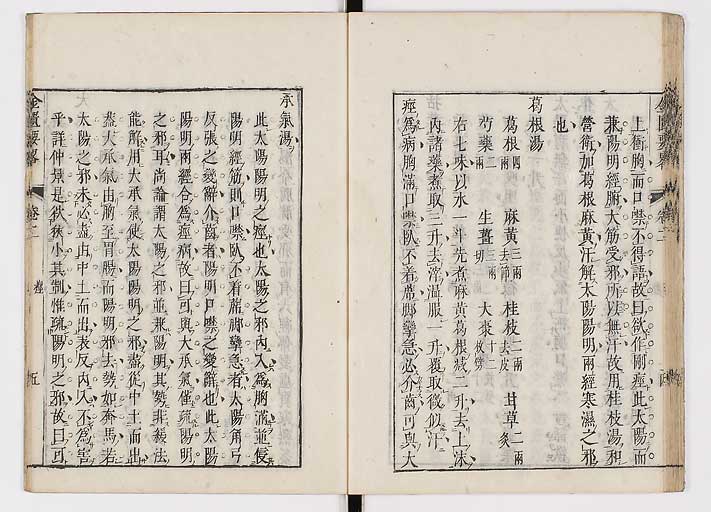 上衝胸而口禁不得語故曰欲作剛痙此太陽而
兼陽明經腑大筋受邪所以無汗故用桂枝湯和
營衛加葛根麻黃汗解太陽陽明兩經寒濕之邪
也
葛根湯
葛根四兩 麻黃三兩去節 桂枝二兩去皮 甘草炙二兩
芍藥二兩 生薑三兩切 大棗十二枚劈
右七味以水一斗先煮麻黃葛根減二升去上沫
內諸藥煮取三升去滓溫服一升覆取微似汗
痙為病胸滿口禁臥不着席脚攣急必介齒可與大
承氣湯
此太陽陽明之痙也太陽之邪內入為胸滿並侵
陽明經筋則口禁臥不着蓆脚攣急者太陽角弓
反張之變辭介齒者陽明口禁之變辭也此太陽
陽明兩經合為痙病故曰可與大承氣僅疏陽明
之邪耳尚論謂太陽之邪並兼陽明其勢非緩法
能解用大承氣使太陽陽明之邪盡從中土而出
蓋大承氣由胸至胃腸而陽明邪去勢如奔馬若
太陽之邪未必盡由中土而出表反內入不為害
乎詳仲景是欲狹小其制惟疏陽明之邪故曰可
金匱要略 卷二 痙 五